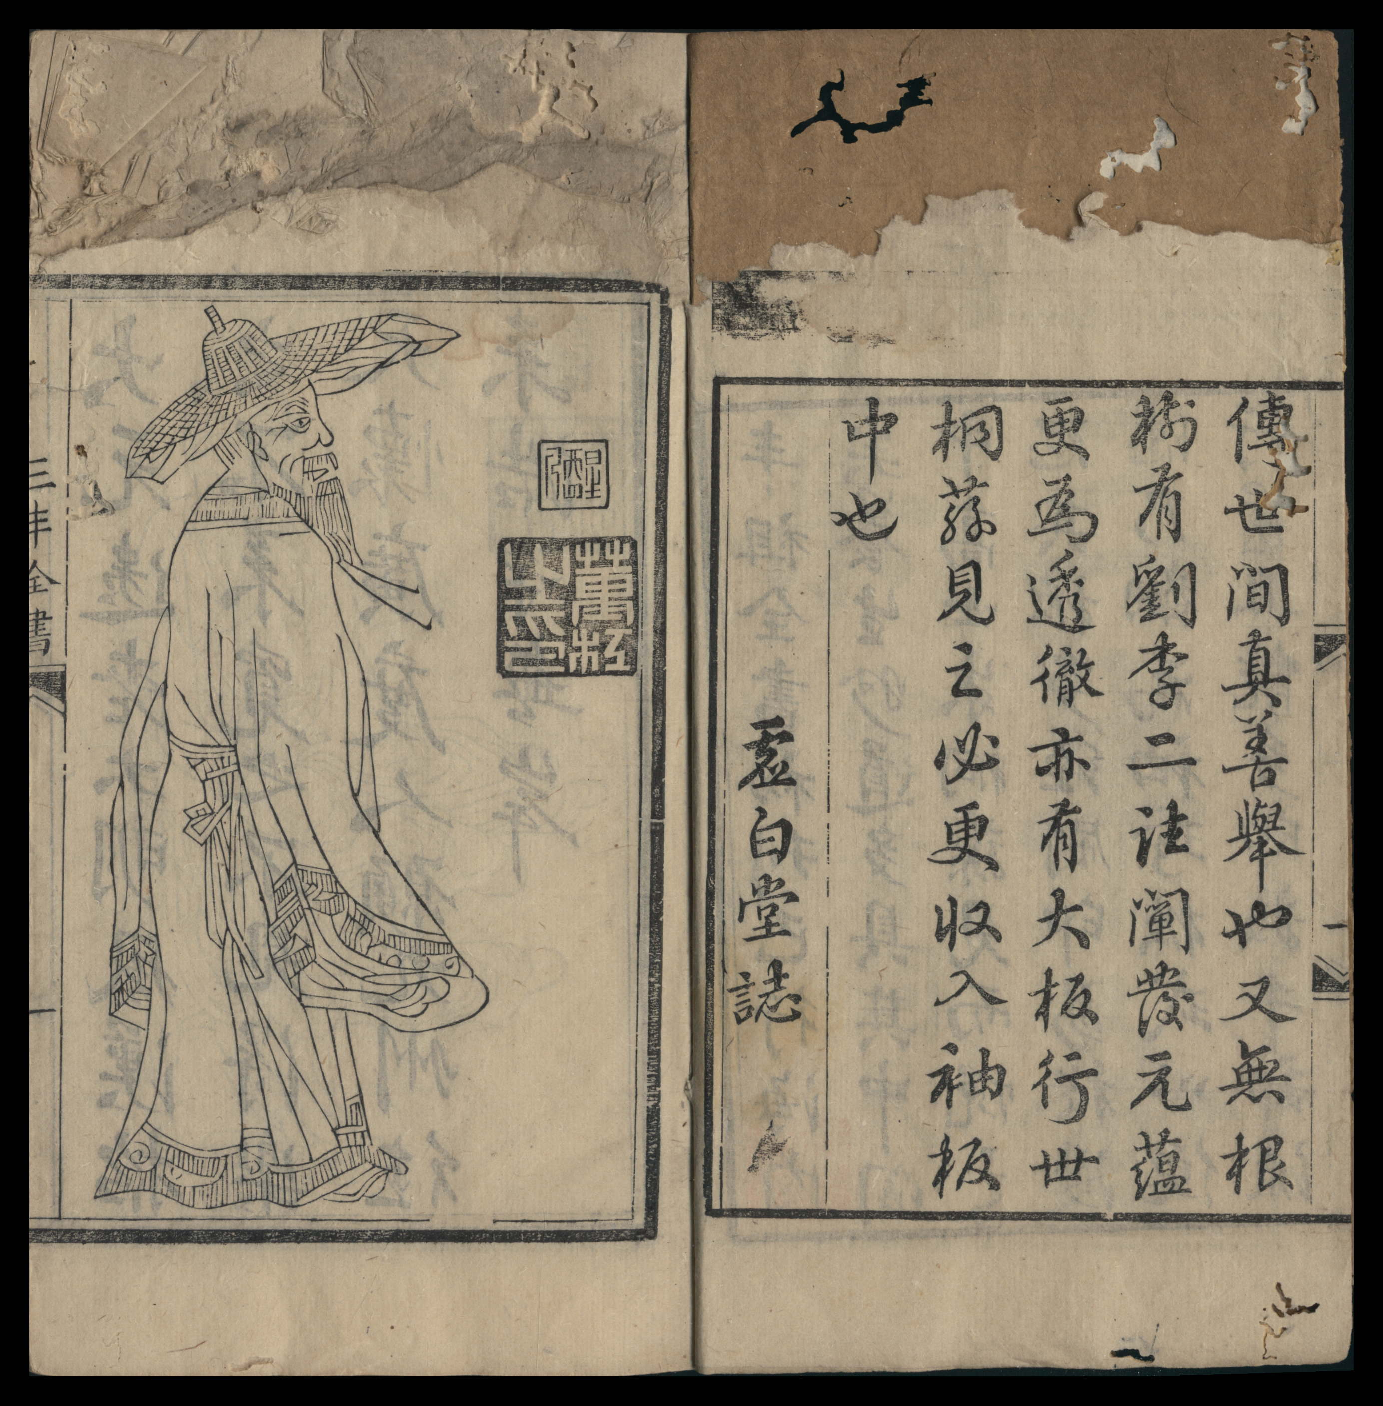 傳世間真善舉也又無根
樹有劉李二註闡發元蘊
更為透徹亦有大板行世
桐蓀見之必更收入袖板
中也
虛白堂誌
三丰全書
一